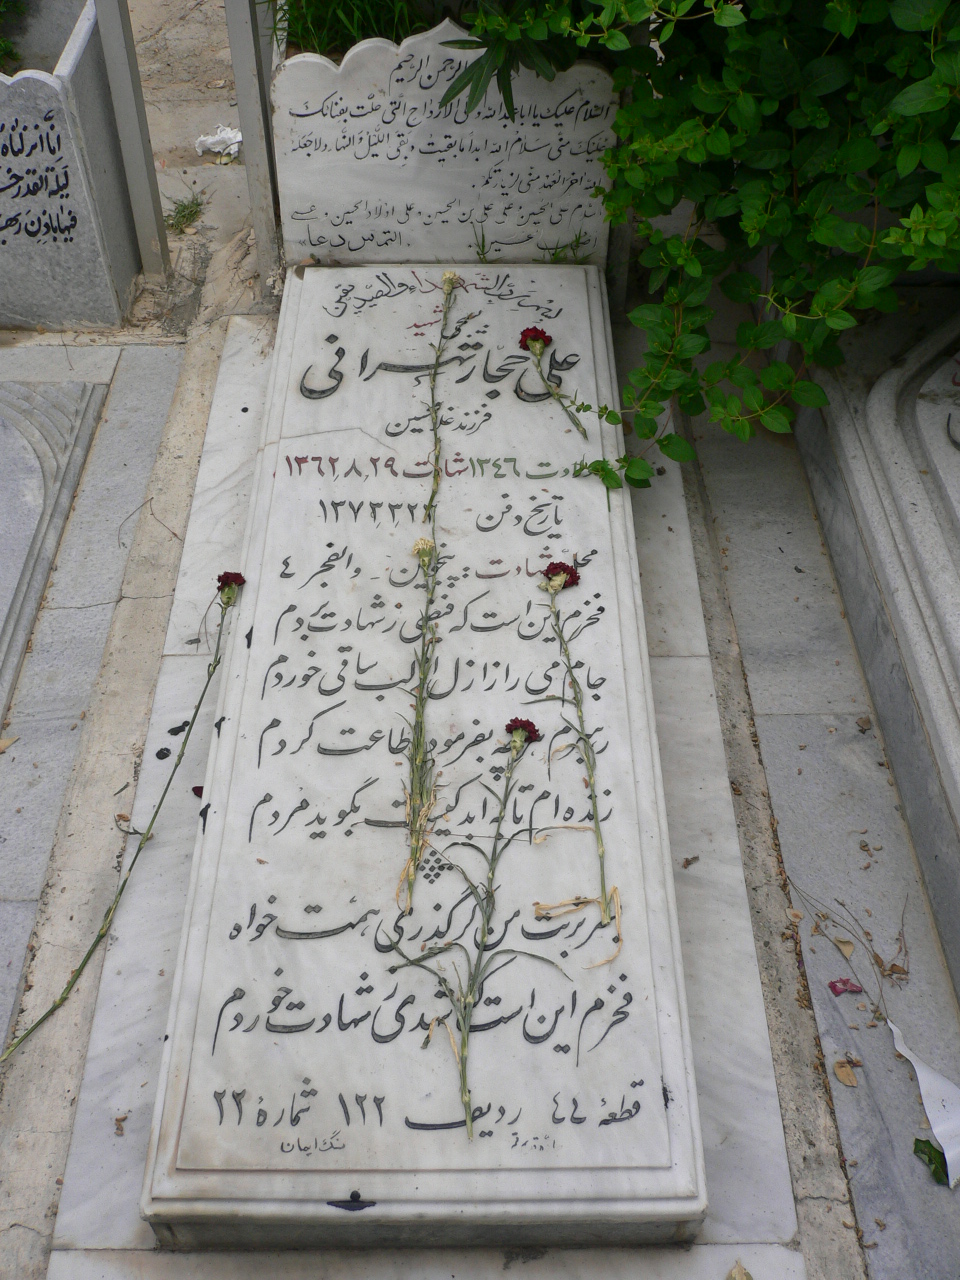 الرحمن الرحیم
السلام علیک یا اباعبدالله وعلی الارواح التی حلت بفنائک
علیک منی سلام الله ابداً ما بقیت و بقی اللیل و النهار ولا جعله
الله اخر العهد منی لزیارتکم
السلام علی الحسین وعلی علی بن الحسین وعلی اولاد الحسین
التماس دعا
شهید
علی حجار تهرانی
فرزند غلامحسین
ولادت ۱۳٤٦ شهادت ۱۳٦۲٫۸٫۲۹
تاریخ دفن ۱۳۷۳٫۳٫۲۳
محل شهادت: پنجوین - والفجر ٤
فخرم این است که فیضی ز شهادت بردم
جام می را ز ازل از لب ساقی خوردم
رهبرم هر چه بفرمود اطاعت کردم
زنده ام تا به ابد کیست بگوید مردم
بر سر تربت من گر گذری همت خواه
فخرم این است که شهدی ز شهادت خوردم
قطعهٔ ٤۰ ردیف ۱۲۲ شمارهٔ ۲۲
سنگ ایمان
انا انزلناه
لیلة القدر
فیها باذن